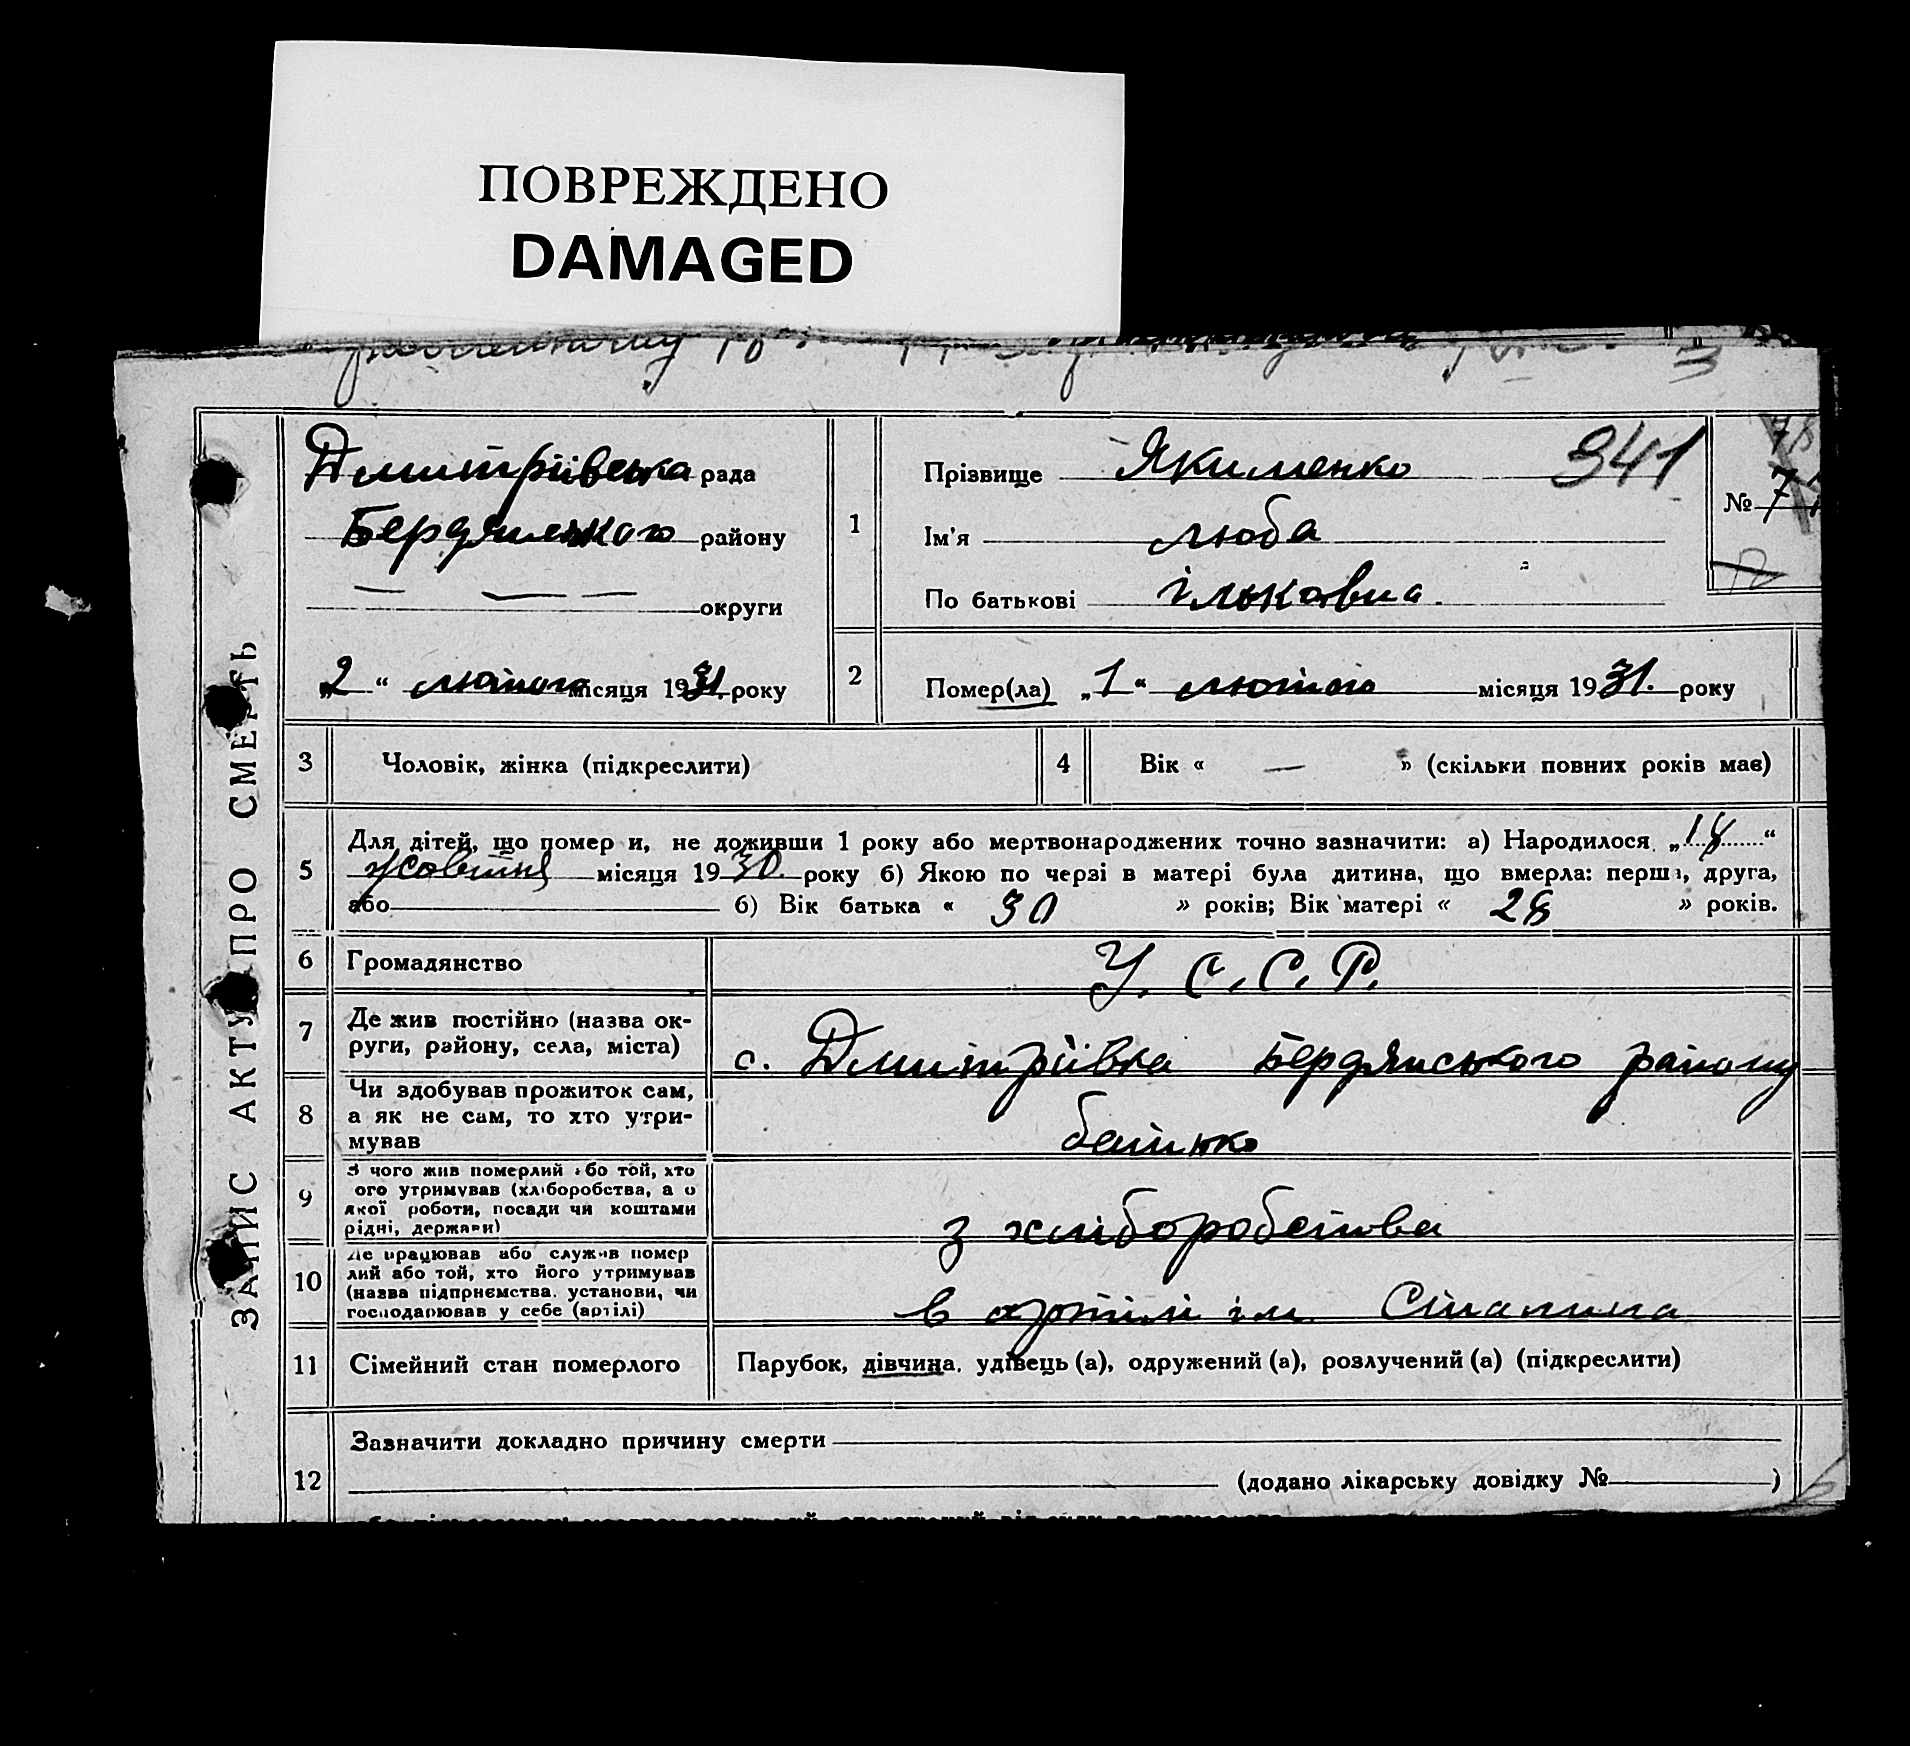 ПОВРЕЖДЕНО
DAMAGED
ЗАПИС АКТУ ПРО СМЕРТЬ
Дмитріївська рада
Бердянського району
— — — округи
„2“ лютого місяця 1931. року
1
Прізвище Якименко 341
Ім'я Люба
По батькові Ільковна.
№ 7
2
Помер(ла) „1“ лютого місяця 1931. року
3 Чоловік, жінка (підкреслити)
4 Вік « — » (скільки повних років має)
5
Для дітей, що помер и, не доживши 1 року або мертвонароджених точно зазначити: а) Народилося „18“
жовтня місяця 1930. року б) Якою по черзі в матері була дитина, що вмерла: перша, друга,
або б) Вік батька « 30 » років; Вік матері « 28 » років.
6 Громадянство У. С. С. Р.
7 Де жив постійно (назва ок-
руги, району, села, міста)
с. Дмитріївка Бердянського району
8 Чи здобував прожиток сам,
а як не сам, то хто утри-
мував
батько
9 З чого жив померлий або той, хто
ого утримував (хліборобства, а о
якої роботи, посади чи коштами
рідні, держави)
з хліборобства
10 Де працював або служив помер
лий або той, хто його утримував
(назва підприємства, установи, чи
господарював у себе (артілі)
в артілі ім. Сталина
11 Сімейний стан померлого Парубок, дівчина, удівець (а), одружений (а), розлучений (а) (підкреслити)
12 Зазначити докладно причину смерти
(додано лікарську довідку № )